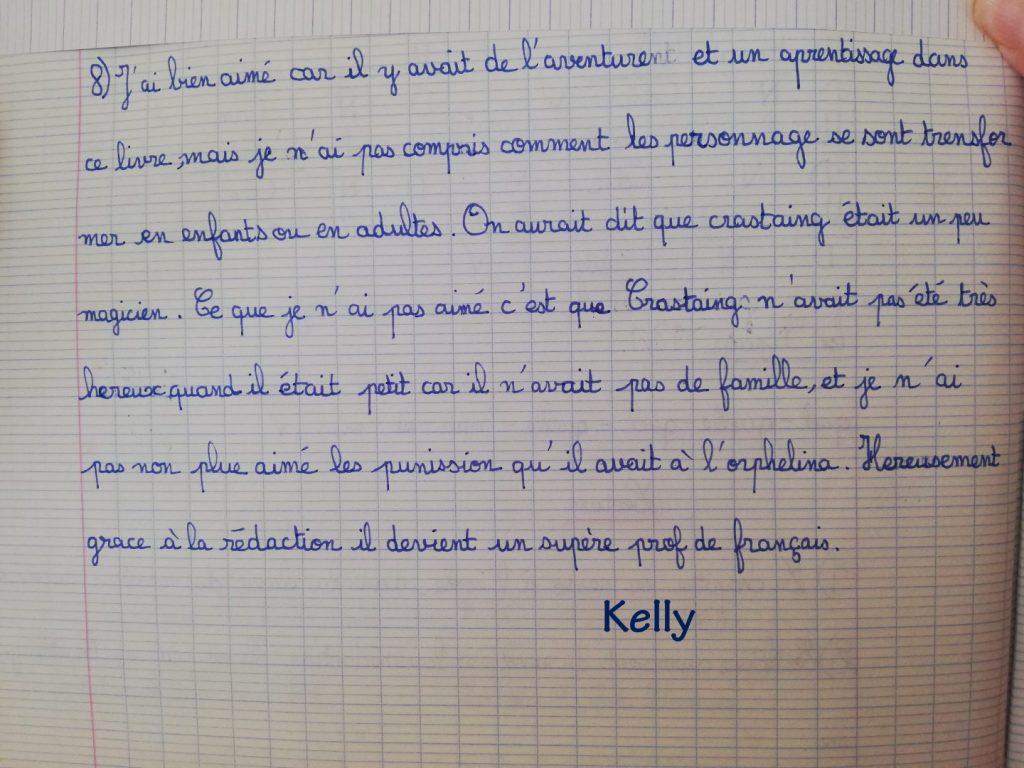 8) J'ai bien aimé car il y avait de l'aventurent et un aprentissage dans
ce livre, mais je n'ai pas compris comment les personnage se sont transfor
mer en enfants ou en adultes. On aurait dit que crastaing était un peu
magicien. Ce que je n'ai pas aimé c'est que Crastaing n'avait pas été très
hereux quand il était petit car il n'avait pas de famille, et je n'ai
pas non plue aimé les punission qu'il avait à l'orphelina. Hereusement
grace à la rédaction il devient un supère prof de français.
Kelly